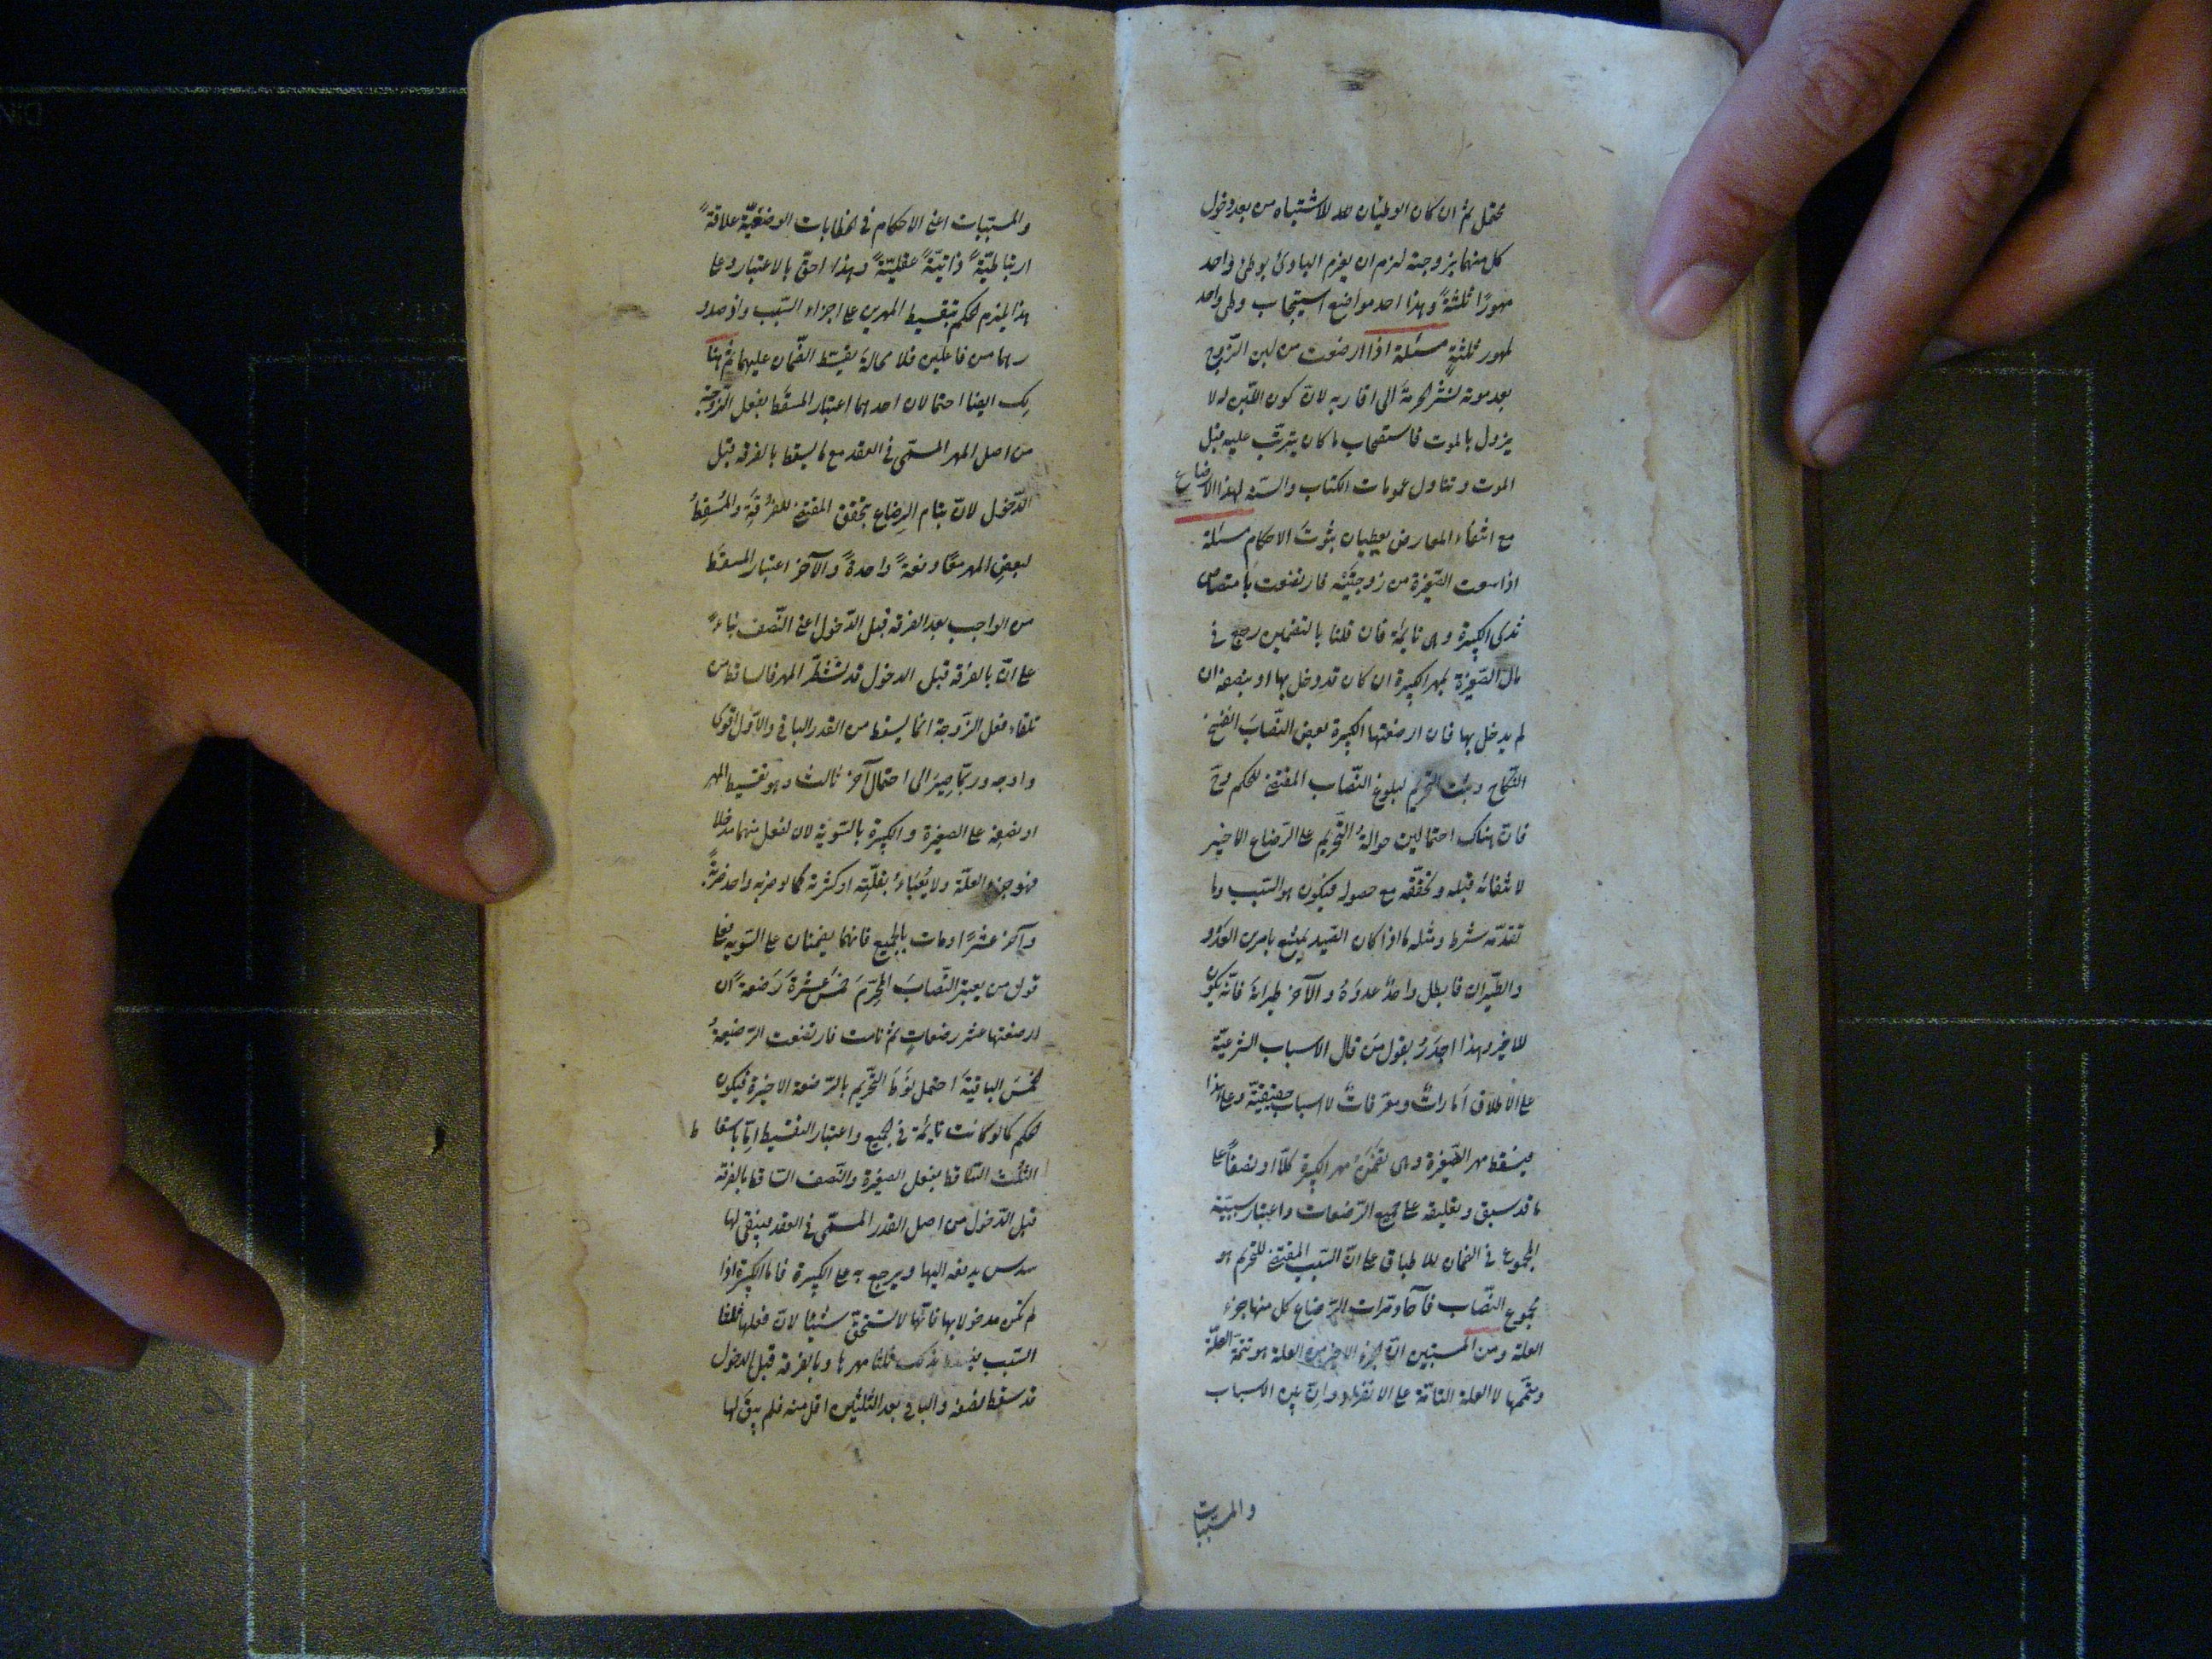 محتمل ثم ان كان الوطيان للاشتباه من بعد دخول
كل منهما بزوجته لزم ان يغرم البادي بوطئ واحد
مهورًا ثلثةً وهذا احد مواضع استيجاب وطى واحد
لمهور ثلثةٍ مسئلة اذا ارضعت من لبن الزوج
بعد موته نشر الحرمة الى اقاربه لانّ كون اللّبن له لا
يزول بالموت فاستصحاب ما كان يترتّب عليه قبل
الموت وتناول عمومات الكتاب والسنة لهذا الارضاع
مع انتفاء المعارض يعطيان بثبوت الاحكام مسئلة
اذا سعت الصّغيرة من زوجتيه فارتضعت بامتصاص
ثدى الكبيرة وهى نايمة فان قلنا بالتضمين رجع فى
مال الصّغيرة بمهر الكبيرة ان كان قد دخل بها او بنصفه ان
لم يدخل بها فان ارضعتها الكبيرة بعض النّصاب انفسخ
النكاح وثبت التحريم لبلوغ النّصاب المقتضى للحكم وح
فان هناك احتمالين حوالةُ التّحريم على الرّضاع الاخير
لانتفائه قبله وتحقّقه مع حصوله فيكون هو السّبب وما
تقدّمه شرط ومثله ما اذا كان الصّيد يمتنع بامرين العَدو
والطّيران فابطل واحدٌ عدوَهُ والآخر طيرانَه فانّه يكون
للاخير وهذا اجدَرُ بقول مَن قال الاسباب الشرعيّة
على الاطلاق اَماراتٌ ومعرّفاتٌ لا اسباب حقيقيّة وعلى هذا
فيسقط مهر الصّغيرة وهى تضمَنُ مهر الكبيرة كلّاً او نصفاً على
ما قد سبق وتعليقه على جميع الرّضعات واعتبار سببيّة
المجموع فى الضمان للاطباق على انّ السّبب المقتضى للتحريم هو
مجموع النّصاب فآحاد مّرات الرّضاع كل منها جزء
العلة ومن المستبين انّ الجزء الاخير من العلة هو تتمّة العلّة
ومتمّمها لا العلة التامّة على الانفراد وانّ بين الاسباب
والمسبّبات
والمسبّبات اعنى الاحكام فى الخطابات الوضعيّة علاقةً
ارتباطيّةً ذاتيّةً عقليّةً وهذا احقّ بالاعتبار وعلى
هذا يلزم الحكم بتقسيط المهرين على اجزاء السّبب واذ صدور
رها من فاعلَين فلا محالة يقسّط الضّمان عليهما ثمّ هنا
لك ايضا احتمالان احدهما اعتبار المسقط بفعل الزّوجة
من اصل المهر المسمّى فى العقد مع ما يسقط بالفرقه قبل
الدّخول لانّ بتمام الرضاع تحقق المقتضى للفُرقةِ والمُسقِطُ
لبعض المهر معًا دفعةً واحدةً والآخر اعتبار المسقَط
من الواجب بعد الفرقه قبل الدّخول اعنى النّصف بناءً
على انّ بالفرقه قبل الدخول قد تشطّر المهر فالساقط من
تلقاء فعل الزّوجة انما يسقط من القدر الباقى والاوّل اقوى
واوجه وربّما صِيرَ الى احتمال آخر ثالث وهو تقسيط المهر
او نصفه على الصغيرة والكبيرة بالسّوية لان لفعل منهما مدخلا
فهو جزء العلّة ولا يُعبَاءُ بقلّتِه او كثرته كما لو ضربه واحد ضربةً
وآخر عشرًا ومات بالجميع فانهما يضمنان على السّويه فعلى
قول من يعتبر النّصابَ المحرّم خمسَ عشرَةَ رَضعةً ان
ارضعتها عشر رضعاتٍ ثم نامت فارتضعت الرّضيعةُ
الخمسَ الباقيةَ احتمل نوط التّحريم بالرّضعة الاخيرة فيكون
الحكم كما لو كانت نايمة فى الجميع واعتبار التقسيط امّا باسقاط
الثّلث السّاقط بفعل الصغيرة والنّصف الساقط بالفرقة
قبل الدّخول من اصل القدر المسمّى فى العقد فيبقى لها
سدس يدفعه اليها ويرجع به على الكبيرة فاما الكبيرة اذا
لم تكن مدخولا بها فانّها لا تستحقّ شيئًا لانّ فعلها ثلثا
السّبب فيسقط بذلك ثلثا مهرها وبالفرقة قبل الدخول
قد سقط نصفه والباقى بعد الثلثين اقل منه فلم يبق لها